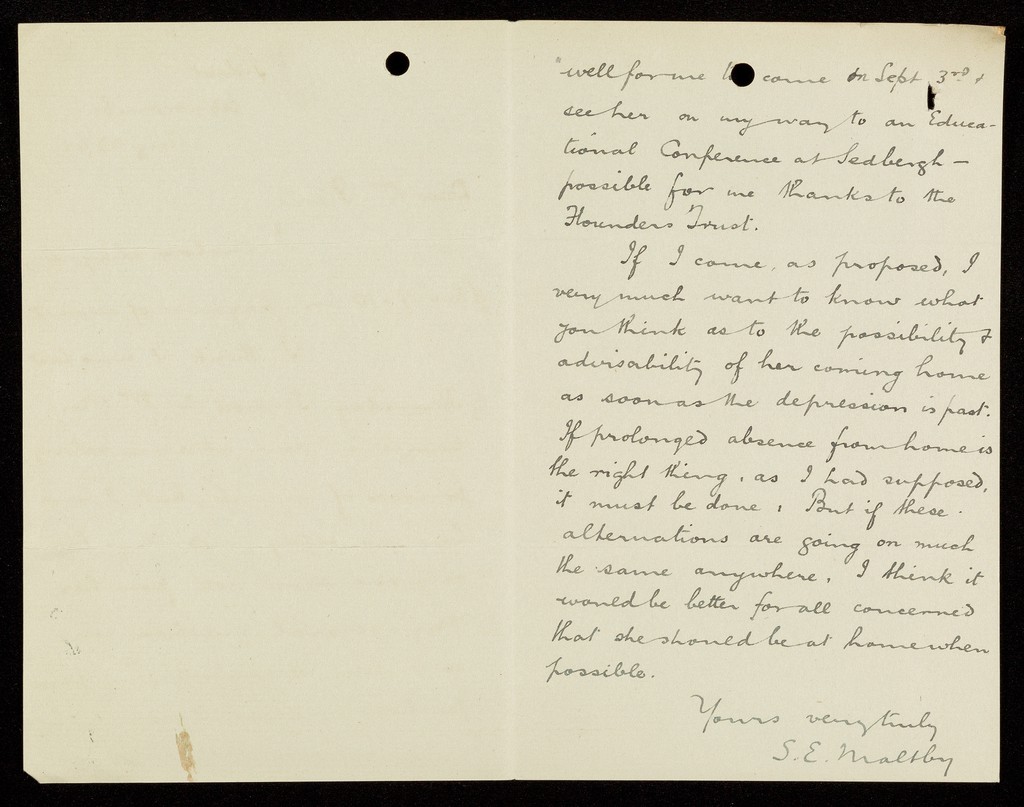 well for me to come on Sept 3rd &
see her on my way to an Educa-
tional Conference at Sedbergh —
possible for me thanks to the
Flounders Trust.
If I come, as proposed, I
very much want to know what
you think as to the possibility &
advisability of her coming home
as soon as the depression is past.
If prolonged absence from home is
the right thing, as I had supposed,
it must be done. But if these
alternations are going on much
the same anywhere, I think it
would be better for all concerned
that she should be at home when
possible.
Yours very truly
S. E. Maltby